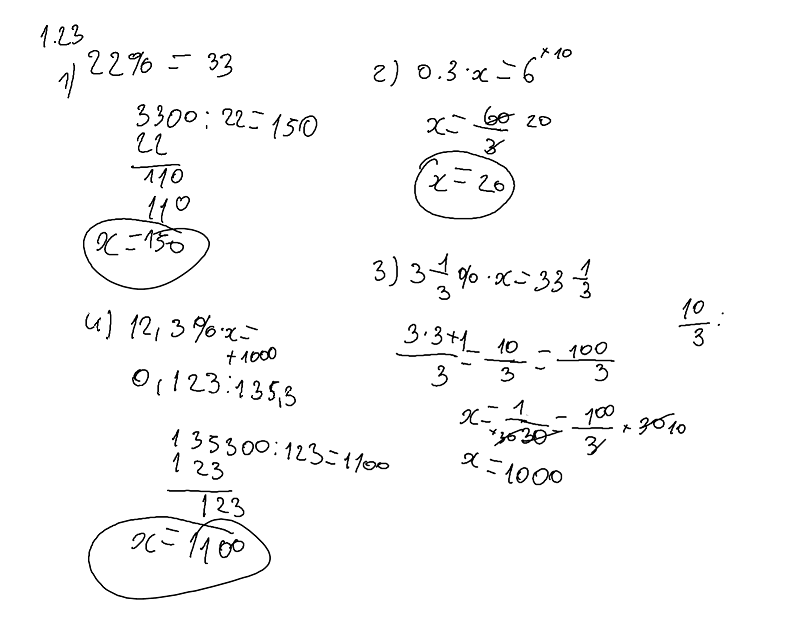 1.23
1) 22% = 33
3300 : 22 = 150
22
110
110
x = 150
2) 0.3 · x = 6 ×10
x = 60/3 20
x = 20
3) 3 1/3 % · x = 33 1/3
(3·3+1)/3 = 10/3 = 100/3
10/3 :
x = 1/30 = 100/3 × 30 10
x = 1000
4) 12,3% · x =
+1000
0,123 : 135,3
135300 : 123 = 1100
123
123
x = 1100